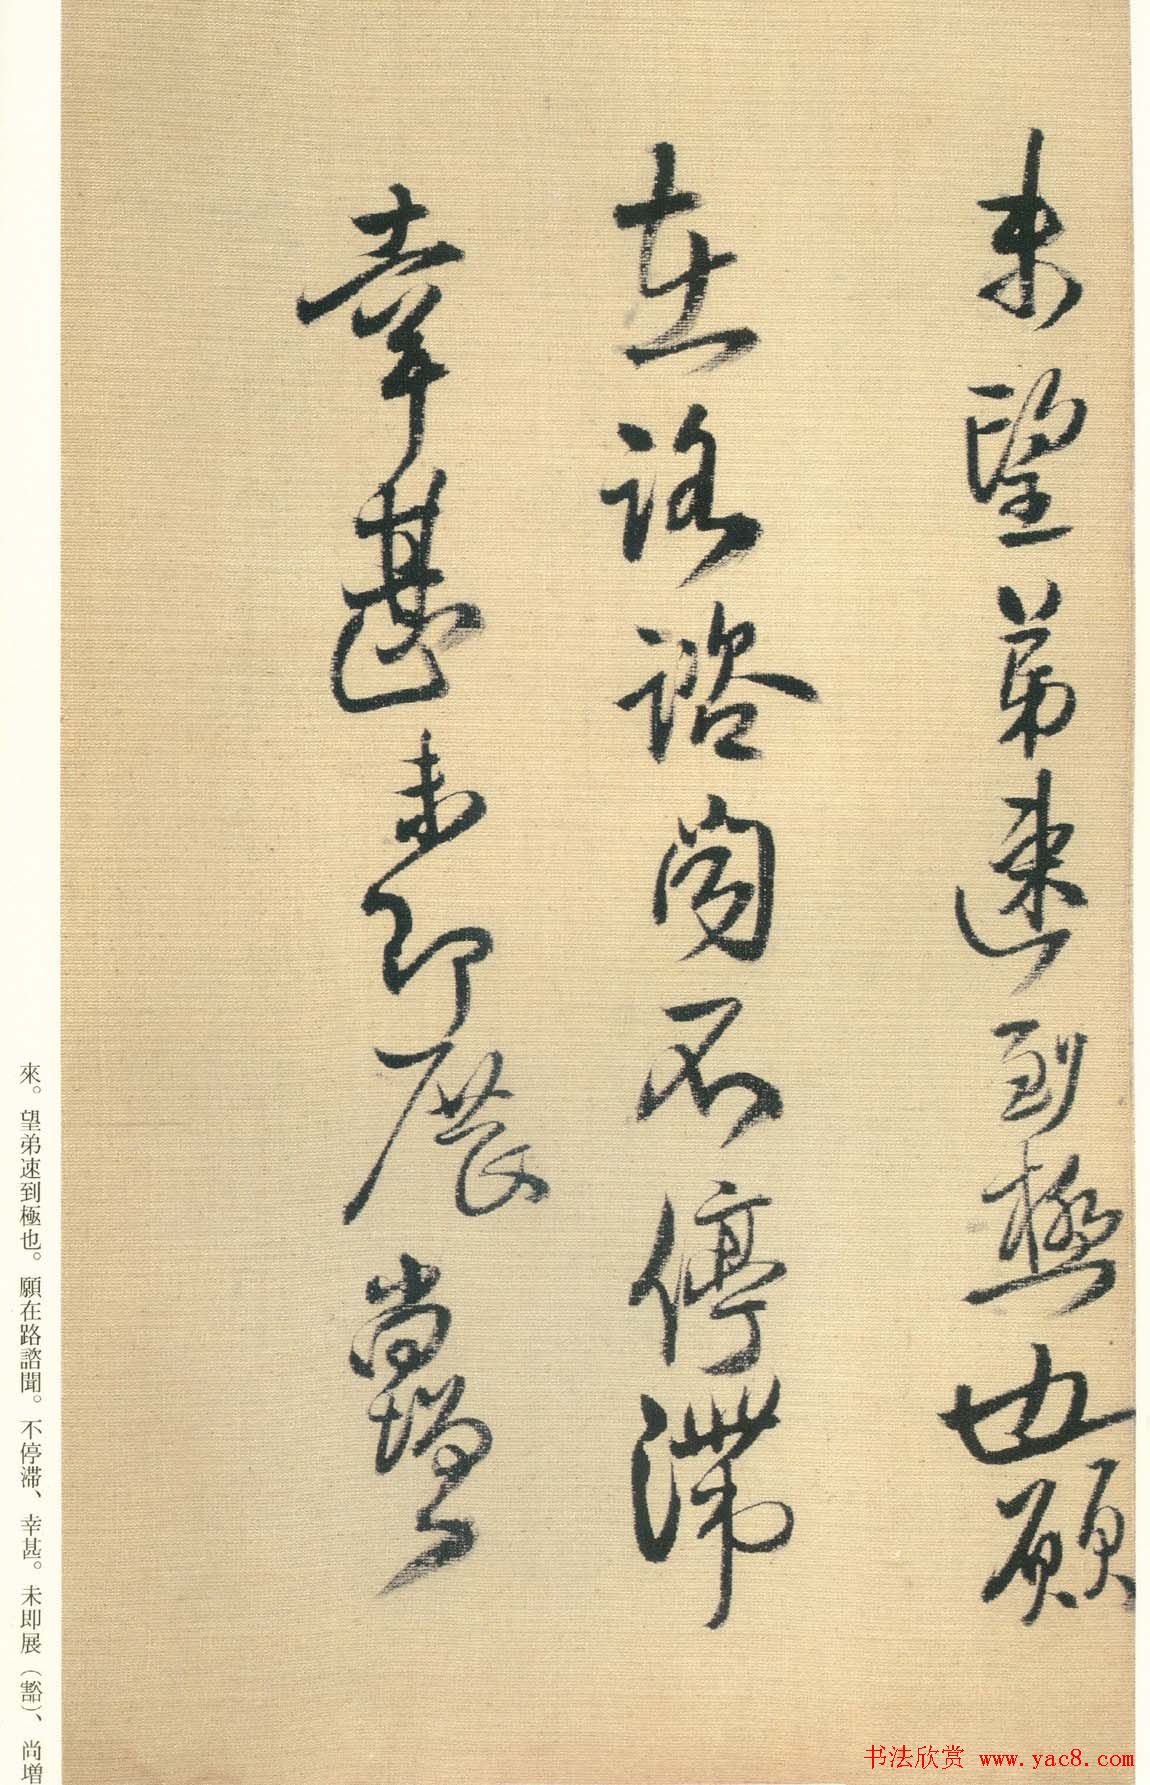 来望弟速到極也願
在路諮聞不停滯
幸甚未即展尚增
來。望弟速到極也。願在路諮聞。不停滯、幸甚。未即展（豁）、尚增
书法欣赏 www.yac8.com